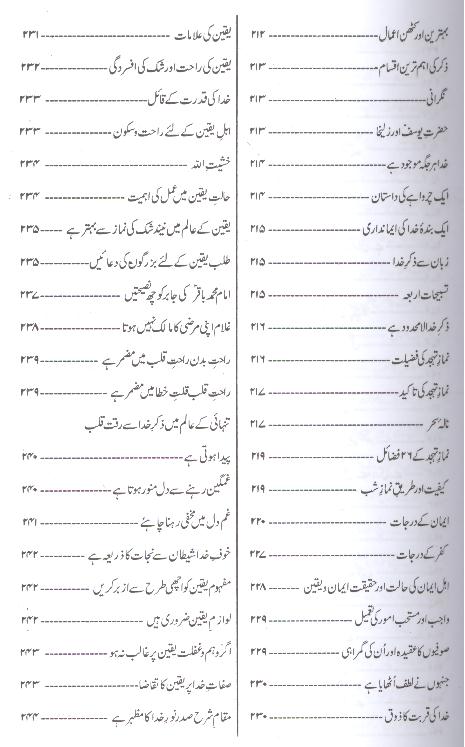 بہترین اور کٹھن اعمال ۲۱۲
ذکر کی اہم ترین اقسام ۲۱۳
نگرانی ۲۱۳
حضرت یوسف اور زلیخا ۲۱۳
خدا ہر جگہ موجود ہے ۲۱۴
ایک چرواہے کی داستان ۲۱۴
ایک بندۂ خدا کی ایمانداری ۲۱۵
زبان سے ذکر خدا ۲۱۵
تسبیحات اربعہ ۲۱۵
ذکر خدا لامحدود ہے ۲۱۶
نماز تہجد کی فضیلت ۲۱۶
نماز تہجد کی تاکید ۲۱۷
نالۂ سحر ۲۱۷
نماز تہجد کے ۲۶ فضائل ۲۱۹
کیفیت اور طریق نماز شب ۲۱۹
ایمان کے درجات ۲۲۰
کفر کے درجات ۲۲۷
اہل ایمان کی حالت اور حقیقت ایمان و یقین ۲۲۸
واجب اور مستحب امور کی تکمیل ۲۲۹
صوفیوں کا عقیدہ اور اُن کی گمراہی ۲۲۹
جنہوں نے لطف اُٹھایا ہے ۲۳۰
خدا کی قربت کا ذوق ۲۳۰
یقین کی علامات ۲۳۱
یقین کی راحت اور شک کی افسردگی ۲۳۲
خدا کی قدرت کے قائل ۲۳۳
اہل یقین کے لئے راحت و سکون ۲۳۳
خشیت اللہ ۲۳۴
حالت یقین میں عمل کی اہمیت ۲۳۴
یقین کے عالم میں نیند شک کی نماز سے بہتر ہے ۲۳۵
طلب یقین کے لئے بزرگوں کی دعائیں ۲۳۵
امام محمد باقرؑ کی جابر کو چھ نصیحتیں ۲۳۷
غلام اپنی مرضی کا مالک نہیں ہوتا ۲۳۸
راحت بدن راحت قلب میں مضمر ہے ۲۳۹
راحت قلب قلت خطا میں مضمر ہے ۲۳۹
تنہائی کے عالم میں ذکر خدا سے رقت قلب
پیدا ہوتی ہے ۲۴۰
غمگین رہنے سے دل منور ہوتا ہے ۲۴۰
غم دل میں مخفی رہنا چاہئے ۲۴۱
خوف خدا شیطان سے نجات کا ذریعہ ہے ۲۴۲
مفہوم یقین کو اچھی طرح سے ازبر کریں ۲۴۲
لوازم یقین ضروری ہیں ۲۴۲
اگر وہم و غفلت یقین پر غالب نہ ہو ۲۴۳
صفات خدا پر یقین کا تقاضا ۲۴۳
مقام شرح صدر نور خدا کا مظہر ہے ۲۴۴